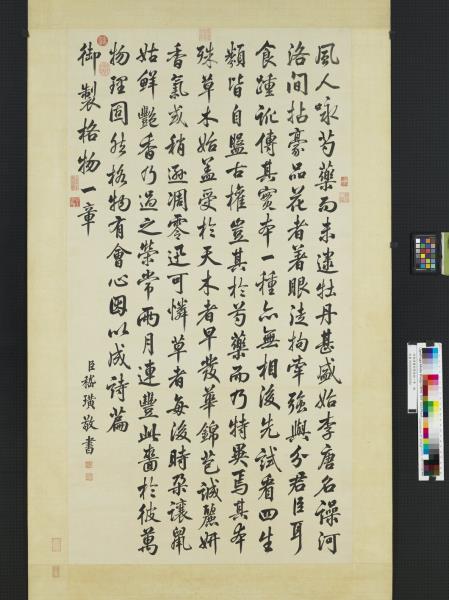 風人咏芍藥而未逮牡丹甚盛始李唐名譟河
洛間拈豪品花者著眼徒拘牽強與分君臣耳
食踵訛傳其實本一種亦無相後先試看四生
類皆自盬古權豈其於芍藥而乃特異焉其本
殊草木始盖受於天木者早發華錦苞誠麗妍
香氣或稍遜凋零迅可憐草者每後時朶讓鼠
姑鮮艷香乃過之榮常兩月連豐此嗇於彼萬
物理固然格物有會心因以成詩篇
御製格物一章
臣嵇璜敬書